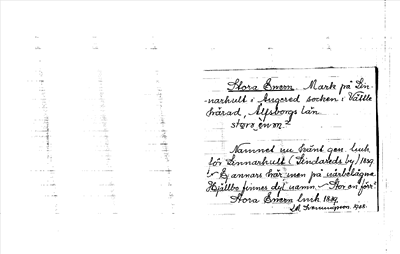 Stora Enern. Mark på Lin-
narhult i Angered socken i Vättle
härad, Älfsborgs län.
stora en
Namnet nu känt gen.
för Linnarhult (Lindareds by) 1839.
Ej annars här men på närbelägna
Hjällbo finnes dyl. namn. Stor en förr
Stora Enern 1839